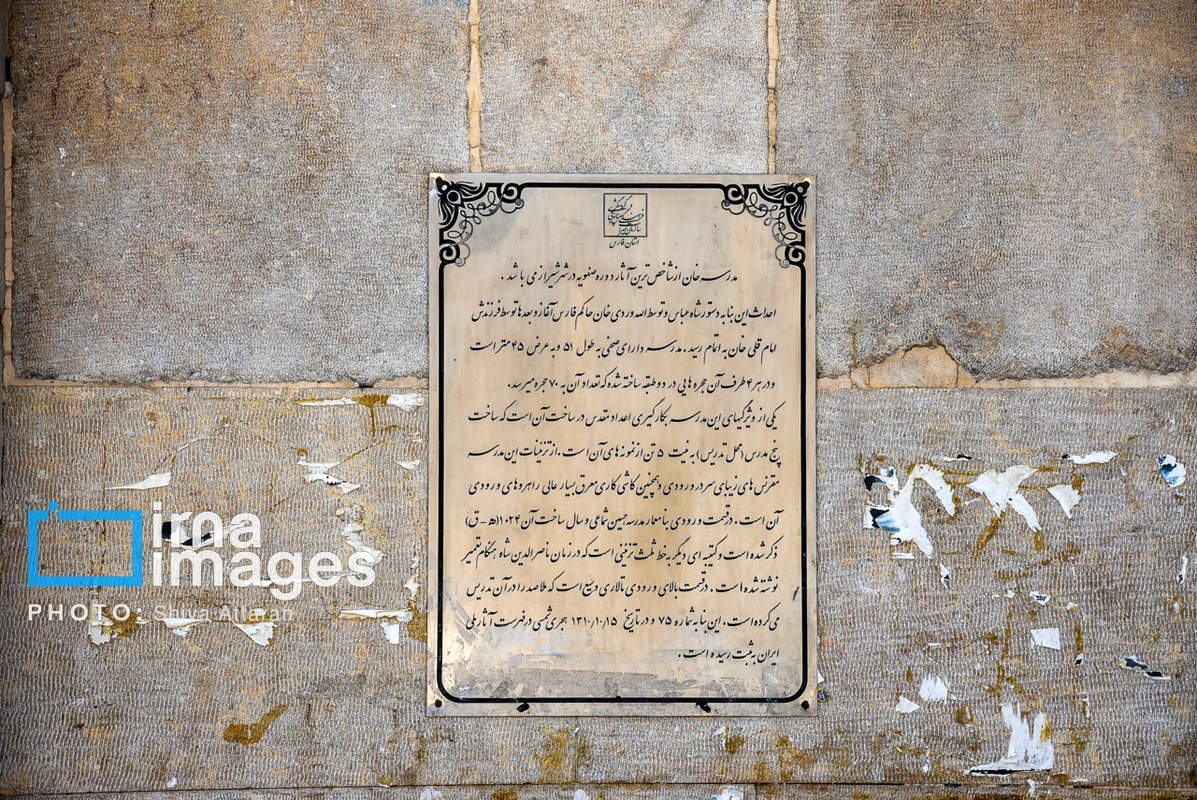 سازمان میراث فرهنگی و گردشگری
استان فارس
مدرسه خان از شاخص ترین آثار دوره صفویه در شهر شیراز می باشد .
احداث این بنا به دستور شاه عباس و توسط الله وردی خان حاکم فارس آغاز و بعدها توسط فرزندش
امام قلی خان به اتمام رسید . مدرسه دارای صحنی به طول ۵۱ و به عرض ۴۵ متر است
و در هر ۴ طرف آن حجره هایی در دو طبقه ساخته شده که تعداد آن به ۷۰ حجره میرسد .
یکی از ویژگیهای این مدرسه بکارگیری اعداد مقدس در ساخت آن است که ساخت
پنج مدرس (محل تدریس) به نیت ۵ تن از نمونه های آن است . از تزئینات این مدرسه
مقرنس های زیبای سردر ورودی و همچنین کاشی کاری معرق بسیار عالی راهروهای ورودی
آن است . در قسمت ورودی بنا معمار مدرسه حسین شماعی و سال ساخت آن ۱۰۲۴ (ه - ق)
ذکر شده است و کتیبه ای دیگر به خط ثلث تزئینی است که در زمان ناصرالدین شاه هنگام تعمیر
نوشته شده است . در قسمت بالای ورودی تالاری وسیع است که ملاصدرا در آن تدریس
می کرده است . این بنا به شماره ۷۵ و در تاریخ ۱۳۱۰/۱۰/۱۵ هجری شمسی در فهرست آثار ملی
ایران به ثبت رسیده است .
irna
images
PHOTO: Shiva Attaran